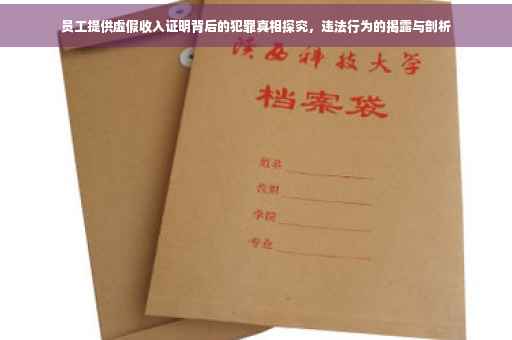 员工提供虚假收入证明背后的犯罪真相探究，违法行为的揭露与剖析
陕西科技大学
档案袋
姓名
学院
专业